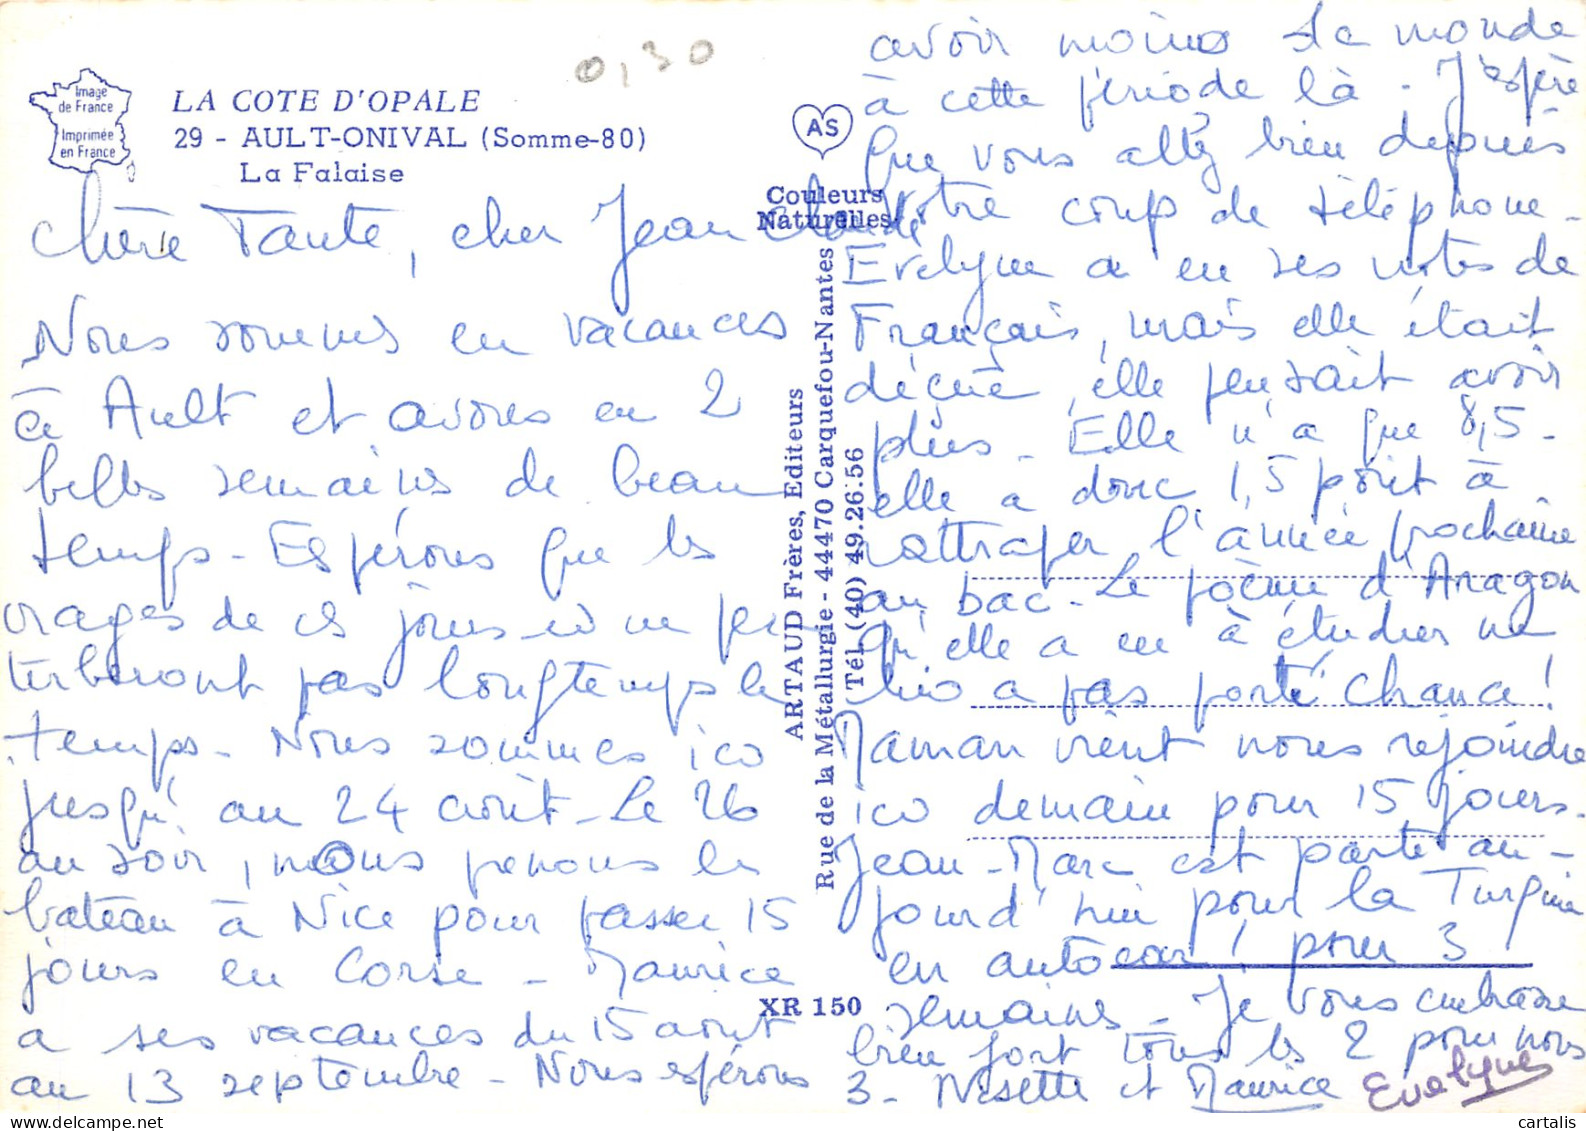 0,30
Image
de France
Imprimée
en France
LA COTE D'OPALE
29 - AULT-ONIVAL (Somme-80)
La Falaise
AS
Couleurs
Naturelles
ARTAUD Frères, Editeurs
Rue de la Métallurgie - 44470 Carquefou-Nantes
Tél. (40) 49.26.56
XR 150
Chère Tante, cher Jean Claude
Nous sommes en vacances
à Ault et avons eu 2
belles semaines de beau
temps - Espérons que les
orages de ces jours-ci ne per-
turberont pas longtemps le
temps - Nous sommes ici
jusqu'au 24 août - Le 26
au soir, nous prenons le
bateau à Nice pour passer 15
jours en Corse - Maurice
a ses vacances du 15 août
au 13 septembre - Nous espérons
avoir moins de monde
à cette période là - J'espère
que vous allez bien depuis
votre coup de téléphone -
Evelyne a eu ses notes de
Français, mais elle était
déçue, elle pensait avoir
plus - Elle n'a que 8,5 -
elle a donc 1,5 point à
rattraper l'année prochaine
au bac - Le poème d'Aragon
qu'elle a eu à étudier ne
lui a pas porté chance !
Maman vient nous rejoindre
ici demain pour 15 jours.
Jean-Marc est parti au-
jourd'hui pour la Turquie
en autocar ! pour 3
semaines - Je vous embrasse
bien fort tous les 2 pour nous
3 - Nisette et Maurice
Evelyne
cartalis